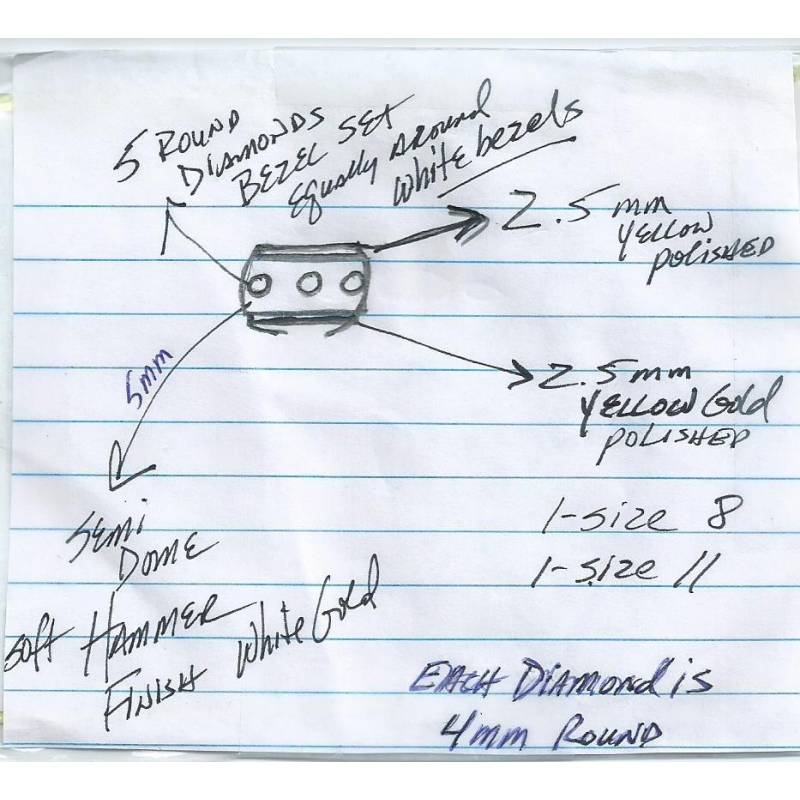 5 ROUND
DIAMONDS
BEZEL SET
Equally AROUND
white bezels
2.5 mm
YELLOW
POLISHED
5mm
2.5mm
YELLOW Gold
POLISHED
SEMI
DOME
soft HAMMER
FINISH White Gold
1-size 8
1-size 11
EACH DIAMOND is
4mm ROUND